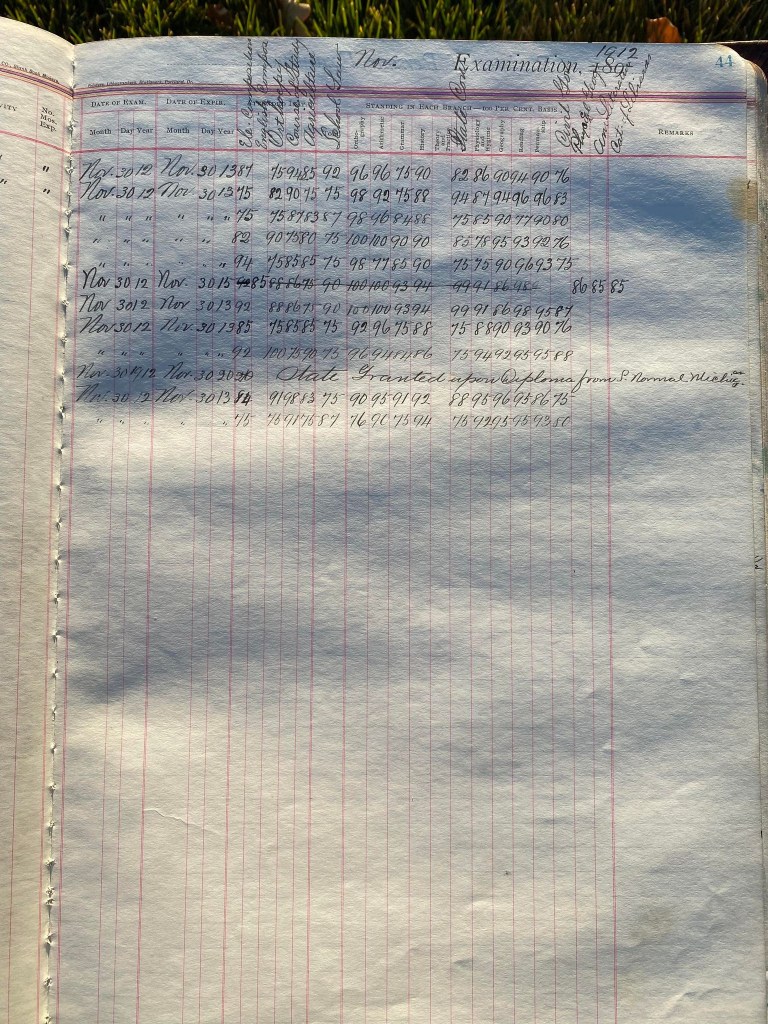 Nov. Examination, 1912 44
DATE OF EXAM. DATE OF EXPIR. STANDING IN EACH BRANCH—100 PER CENT. BASIS REMARKS
No. Mos. Exp.
Month Day Year Month Day Year
School Law Orthography Arithmetic Grammar History Physiology and Hygiene Geography Reading Penmanship
Nov. 30 12 Nov. 30 13 87 75 94 85 92 96 96 75 90 82 86 90 94 90 76
Nov. 30 12 Nov. 30 13 75 82 90 75 75 98 92 75 88 94 87 94 96 96 83
" " " " " " 75 75 87 83 87 98 96 84 88 75 85 90 77 90 80
" " " " " " 82 90 75 80 75 100 100 90 90 85 78 95 93 92 76
" " " " " " 94 75 85 85 75 98 77 85 90 75 75 90 96 93 75
Nov 30 12 Nov. 30 15 92 85 88 86 75 90 100 100 93 94 99 91 86 98 86 85 85
Nov. 30 12 Nov. 30 13 92 88 86 75 90 100 100 93 94 99 91 86 98 95 87
Nov. 30 12 Nov. 30 13 85 75 85 85 75 92 96 75 88 75 88 90 93 90 76
" " " " " " 92 100 75 90 75 96 94 84 86 75 94 92 95 95 88
Nov. 30 1912 Nov. 30 20 State Granted upon Diploma from S. Normal Michig.
Nov. 30 12 Nov. 30 13 84 91 98 83 75 90 95 91 92 88 95 96 95 86 75
" " " " " " 75 75 91 75 87 76 90 75 94 75 92 95 95 93 80